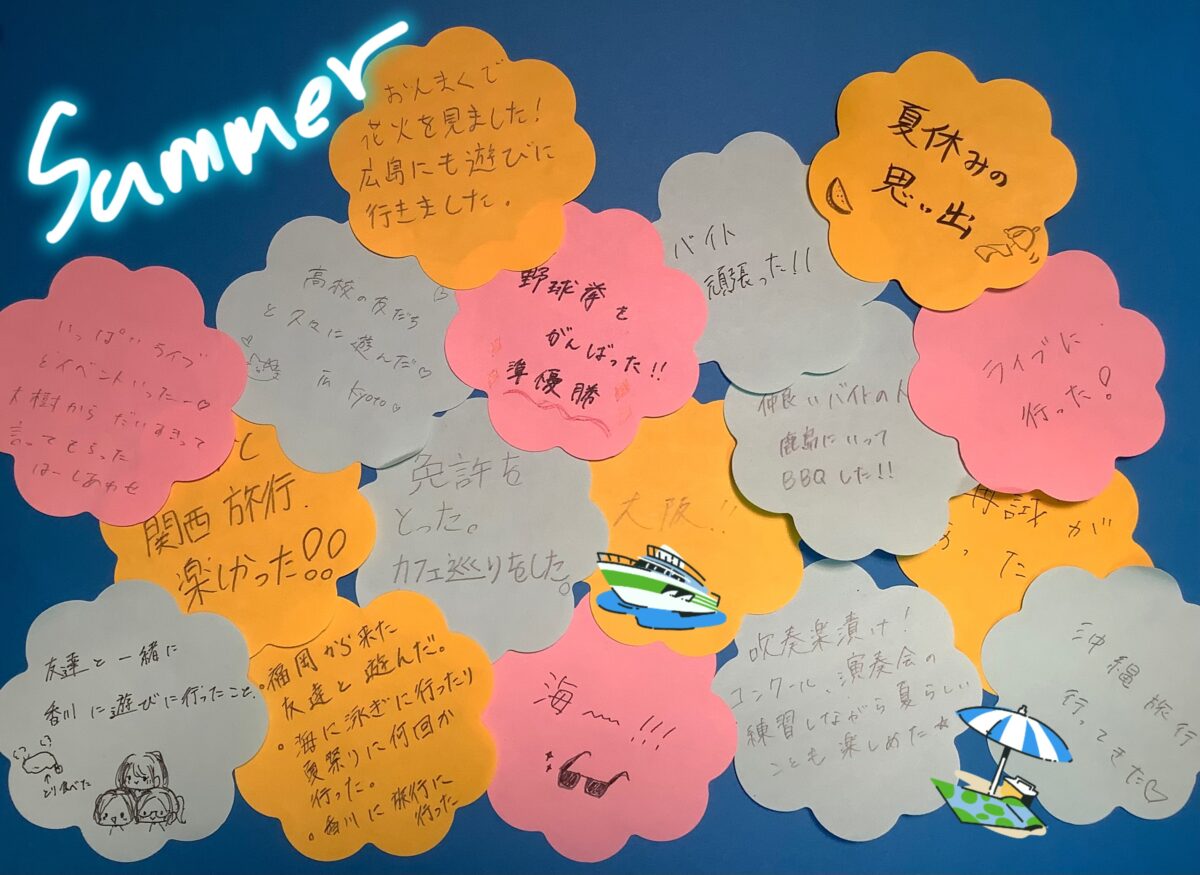 Summer
おんまくで
花火を見ました！
広島にも遊びに
行きました。
夏休みの
思い出
バイト
頑張った!!
高校の友だち
と久々に遊んだ♡
広 Kyoto♡
野球拳を
がんばった!!
準優勝
いっぱいライブ
とイベントいったー♡
大樹から だいすきって
言ってもらった
はーしあわせ
ライブに
行った!
仲良いバイトの人
鹿島にいって
BBQした!!
と
関西旅行
楽しかった!!
免許を
とった。
カフェ巡りをした。
大阪!!
再試が
あった
友達と一緒に
香川に遊びに行ったこと。
とり食べた
。福岡から来た
友達と遊んだ。
。海に泳ぎに行ったり
夏祭りに何回か
行った。
。香川に旅行に
行った
海〜!!!
吹奏楽漬け!
コンクール、演奏会の
練習しながら夏らしい
ことも楽しめた☆
沖縄旅行
行ってきた♡